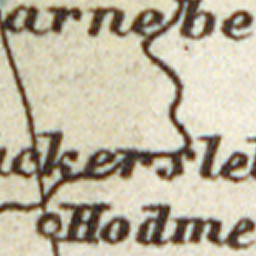 arnebe
uckersle
Hodme